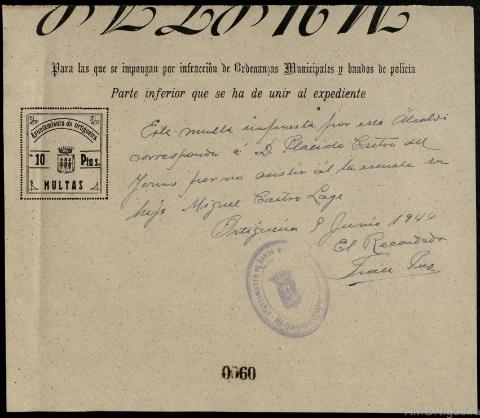 Para las que se impongan por infracción de Ordenanzas Municipales y bandos de policia
Parte inferior que se ha de unir al expediente
Ayuntamiento de Ortigueira
10 Ptas.
MULTAS
Este multa impuesta por esta Alcaldi
corresponde á D. Placido Castro del
Yermo por no asistir al la escuela su
hijo Miguel Castro Lage
Ortigueira 9 Junio 1944
El Recaudador
AYUNTAMIENTO DE
0060